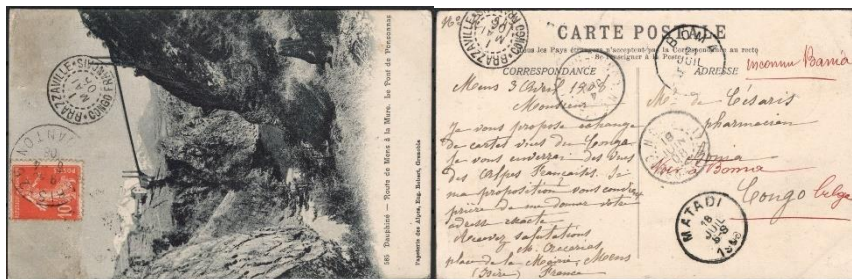 585 Dauphiné — Route de Mens à la Mure. Le Pont de Ponsonnas
Papeterie des Alpes, Eug. Robert, Grenoble
BRAZZAVILLE
CONGO FRANÇAIS
POSTES
10
CARTE POSTALE
Tous les Pays étrangers n'acceptent pas la Correspondance au recto
Se renseigner à la Poste
CORRESPONDANCE
ADRESSE
BRAZZAVILLE
BOMA
inconnu Bania
Mens 3 Avril 1908
Monsieur
Je vous propose échange
de cartes vues du Congo
Je vous enverrai des vues
des Alpes Françaises. Si
ma proposition vous convient
prière de me donner votre
adresse exacte
Recevez salutations
place de la Mairie, Mens
(Isère) France
Mr de Césaris
pharmacien
Voir à Boma
Congo belge
MATADI
18
JUIL
1908